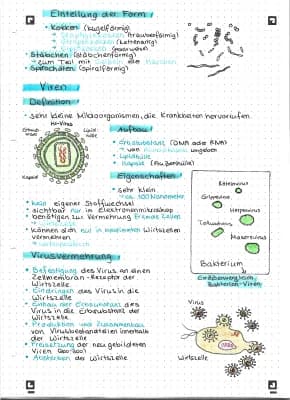 Einteilung der Form
Kokken (kugelförmig)
(traubenförmig)
(kettenartig)
(paarweise)
Stäbchen (stäbchenförmig)
→ zum Teil mit
Spirochäten (spiralförmig)
Viren
Definition
sehr kleine Mikroorganismen, die Krankheiten hervorrufen
Hi-Virus
Kapsel
Aufbau
Erbsubstanz (DNA oder RNA)
→ von umgeben
Lipidhülle
Kapsel (Außenhülle)
Eigenschaften
sehr klein
→ ca. 100 Nanometer
kein eigener Stoffwechsel
sichtbar nur im Elektronenmikroskop
benötigen zur Vermehrung fremde Zellen
können sich nur in Wirtszellen
vermehren
Virusvermehrung
Befestigung des Virus an einen
Zellmembran-Rezeptor der
Wirtszelle
Eindringen des Virus in die
Wirtszelle
Einbau der Erbsubstanz des
Virus in die Erbsubstanz der
Wirtszelle
Produktion und Zusammenbau
von Virusbestandteilen innerhalb
der Wirtszelle
Freisetzung der neu gebildeten
Viren
Absterben der Wirtszelle
Grippevirus
Herpesvirus
Tollwutvirus
Masernvirus
Bakterium
Größenvergleich
Bakterien-Viren
Virus
Wirtszelle